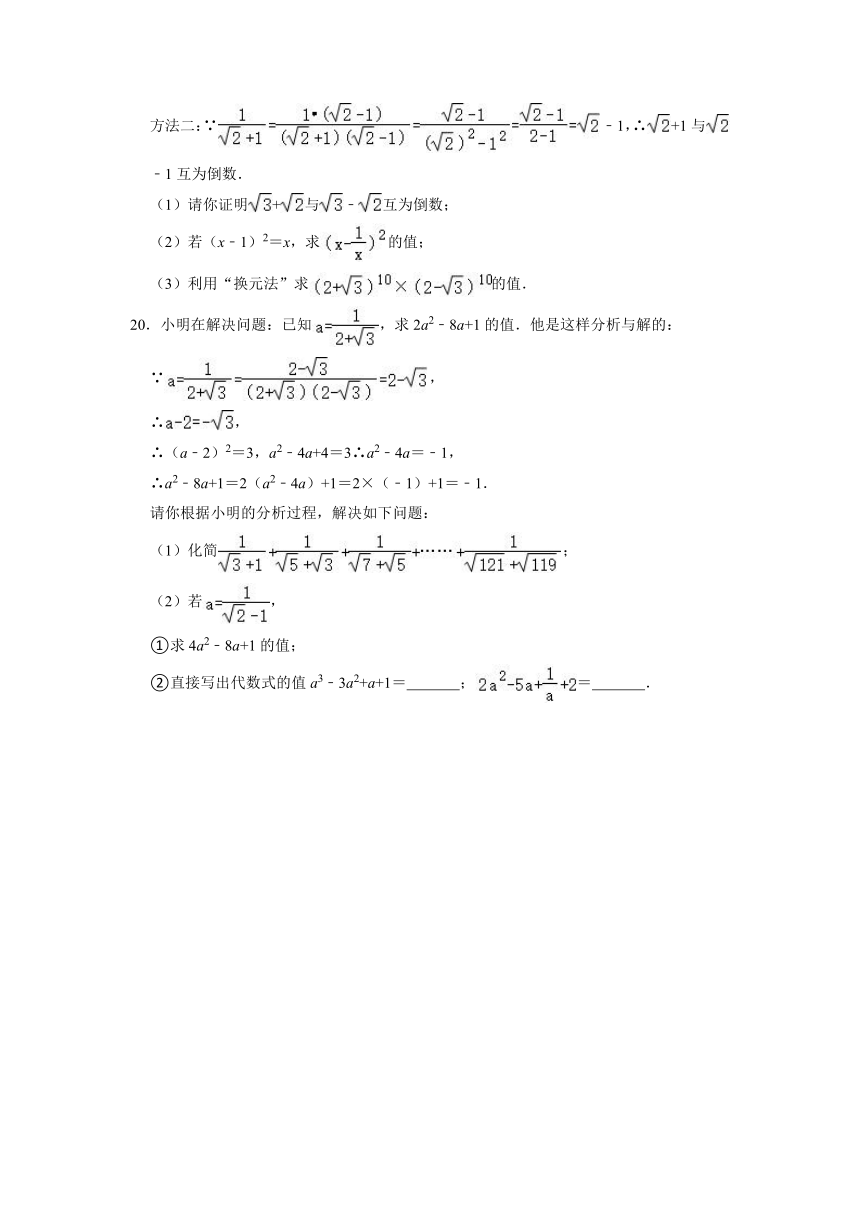 方法二:∵1/(√2+1)=1•(√2-1)/((√2+1)(√2-1))=(√2-1)/((√2)²-1²)=(√2-1)/(2-1)=√2﹣1,∴√2+1与√2
﹣1互为倒数.
(1)请你证明√3+√2与√3﹣√2互为倒数;
(2)若(x﹣1)²=x,求(x-1/x)²的值;
(3)利用“换元法”求(2+√3)¹⁰×(2-√3)¹⁰的值.
20.小明在解决问题:已知a=1/(2+√3),求2a²﹣8a+1的值.他是这样分析与解的:
∵a=1/(2+√3)=(2-√3)/((2+√3)(2-√3))=2-√3,
∴a-2=-√3,
∴(a﹣2)²=3,a²﹣4a+4=3∴a²﹣4a=﹣1,
∴a²﹣8a+1=2(a²﹣4a)+1=2×(﹣1)+1=﹣1.
请你根据小明的分析过程,解决如下问题:
(1)化简1/(√3+1)+1/(√5+√3)+1/(√7+√5)+……+1/(√121+√119);
(2)若a=1/(√2-1),
①求4a²﹣8a+1的值;
②直接写出代数式的值a³﹣3a²+a+1=_______;2a²-5a+1/a+2=_______.